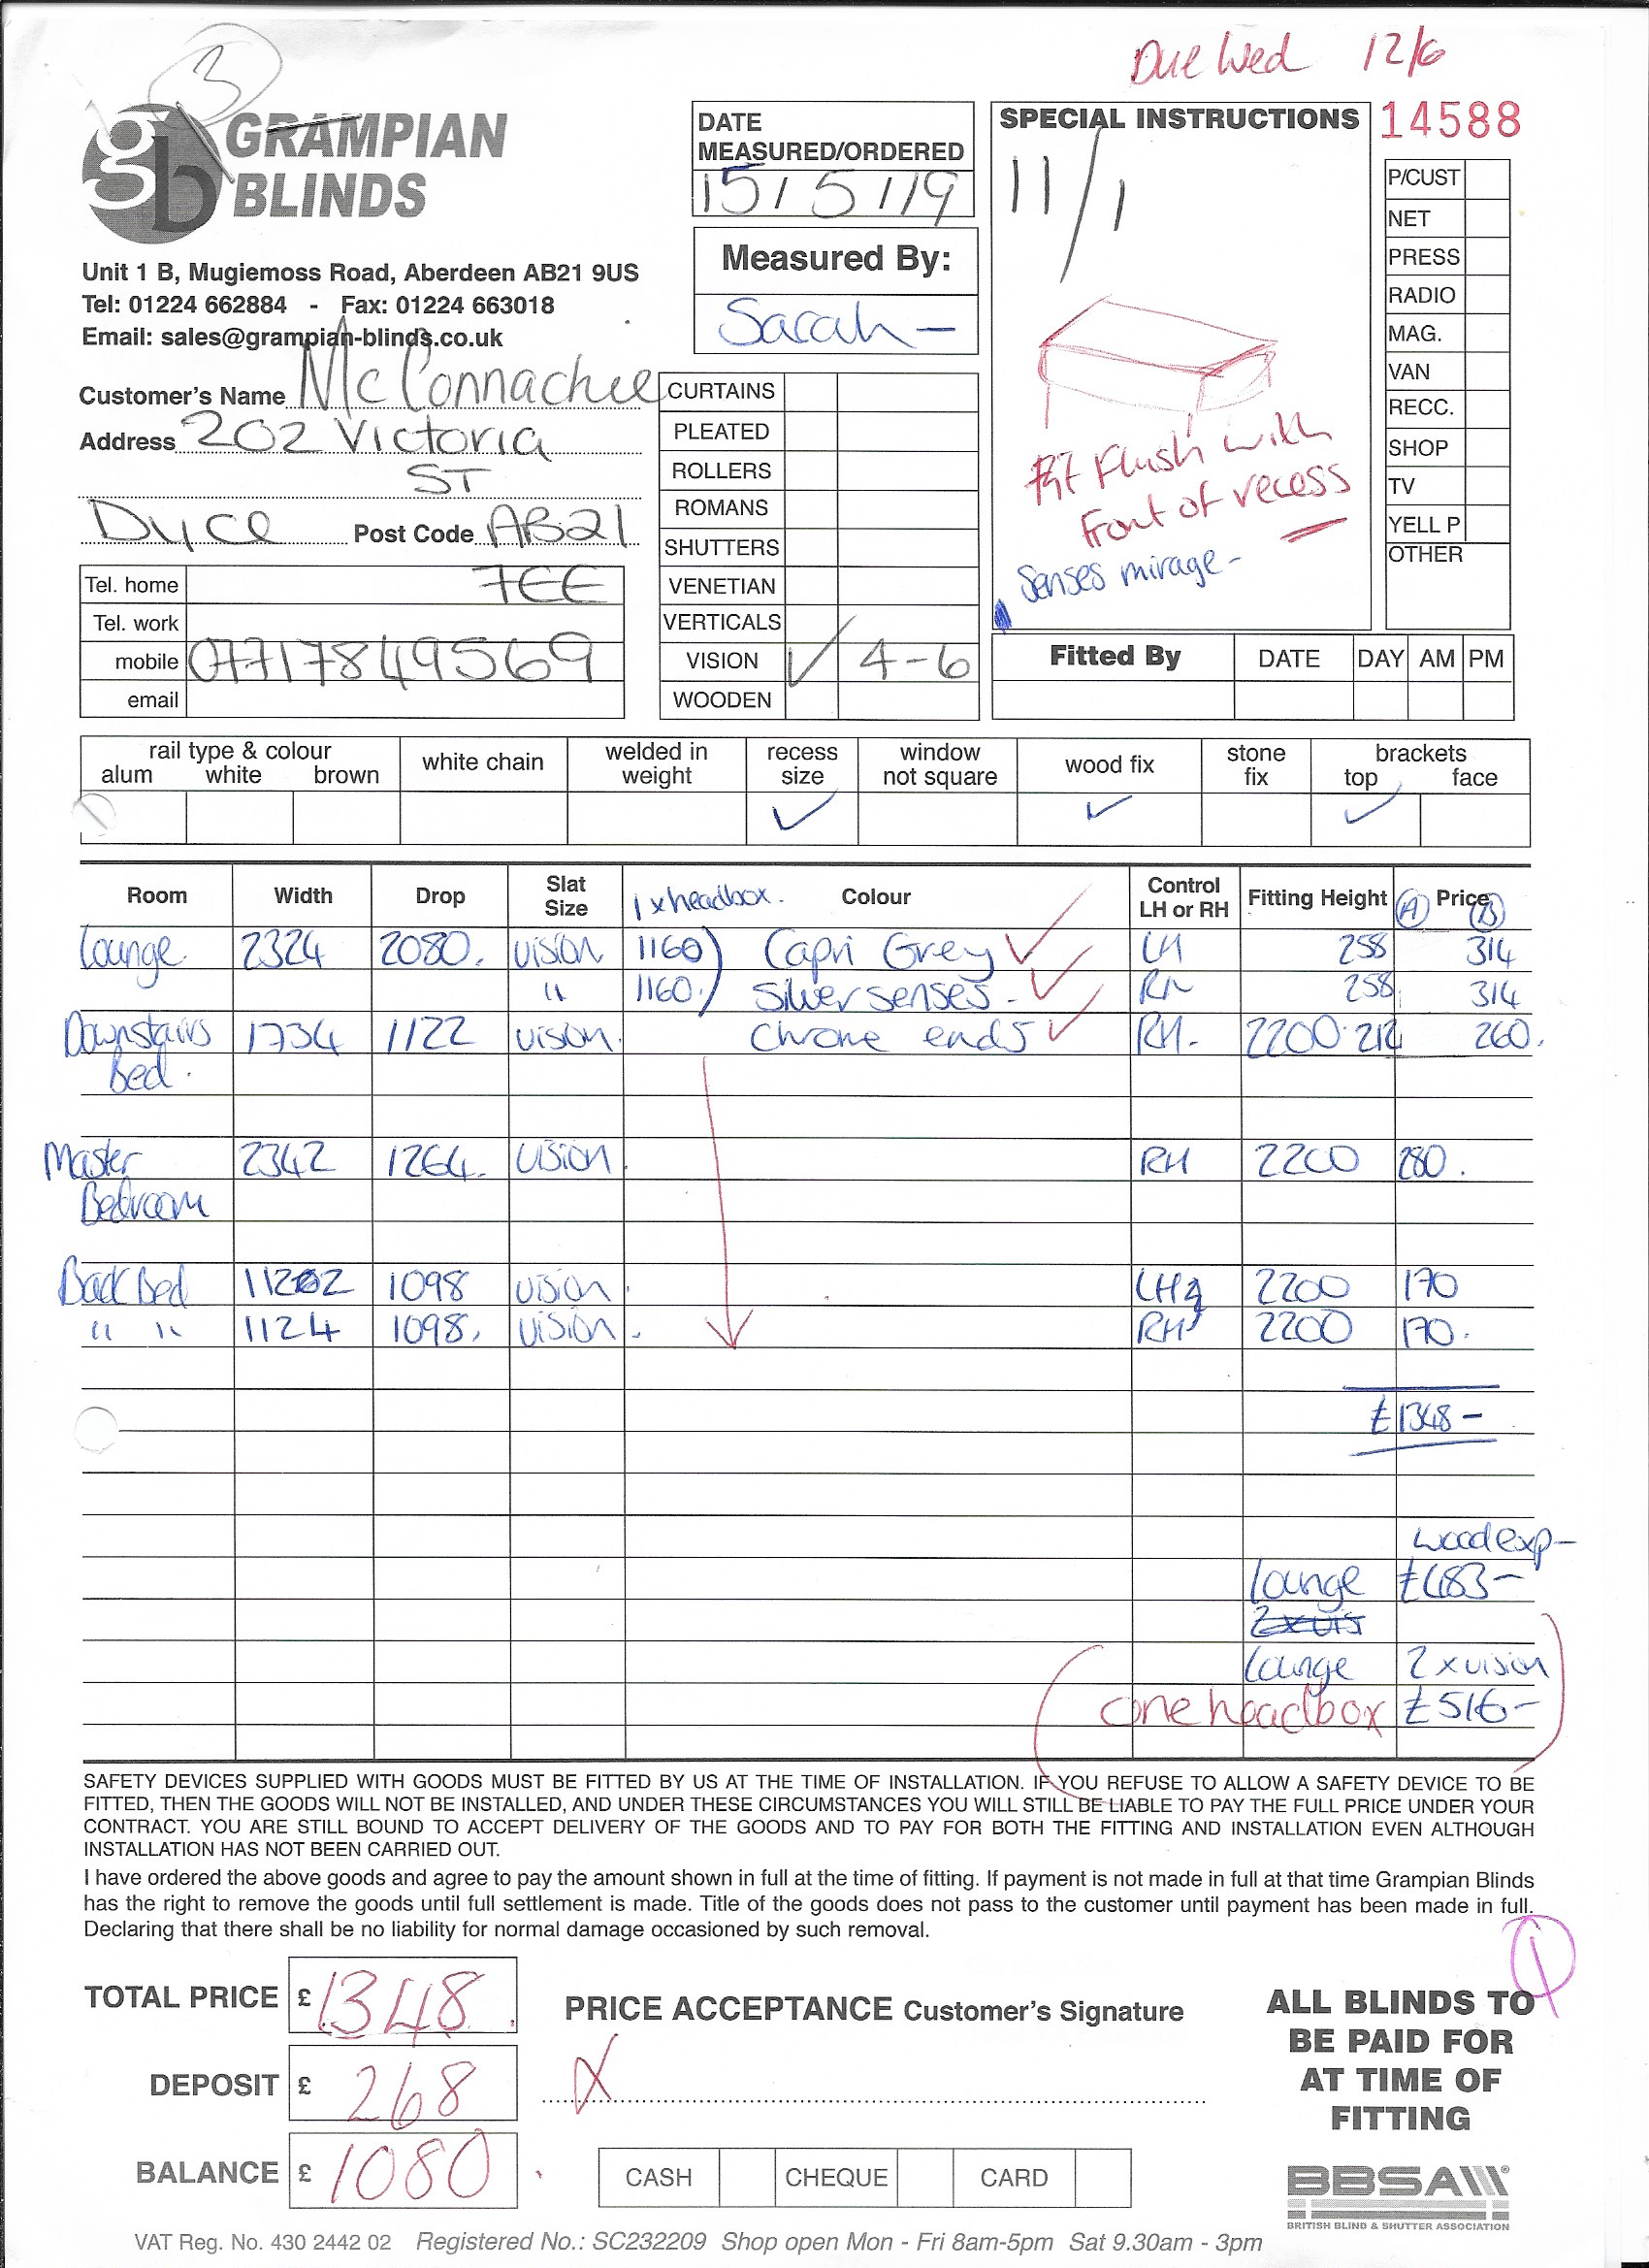 Due Wed 12/6
3
gb GRAMPIAN
BLINDS
Unit 1 B, Mugiemoss Road, Aberdeen AB21 9US
Tel: 01224 662884 - Fax: 01224 663018
Email: sales@grampian-blinds.co.uk
DATE
MEASURED/ORDERED
15/5/19
Measured By:
Sarah -
SPECIAL INSTRUCTIONS
11/1
Fit Flush with
front of recess
Senses mirage -
14588
P/CUST
NET
PRESS
RADIO
MAG.
VAN
RECC.
SHOP
TV
YELL P
OTHER
Customer's Name McConnachie
Address 202 Victoria
ST
Dyce Post Code AB21
7EE
Tel. home
Tel. work
mobile 07717849569
email
CURTAINS
PLEATED
ROLLERS
ROMANS
SHUTTERS
VENETIAN
VERTICALS
VISION ✓ 4-6
WOODEN
Fitted By DATE DAY AM PM
rail type & colour white chain welded in recess window wood fix stone brackets
alum white brown weight size not square fix top face
✓ ✓ ✓
Room Width Drop Slat Size 1 x headbox. Colour Control LH or RH Fitting Height (A) Price (B)
Lounge 2324 2080. vision 1160) Capri Grey ✓ LH 258 314
" 1160.) Silver senses - ✓ RH 258 314
Downstairs 1734 1122 vision. Chrome ends ✓ RH- 2200 212 260.
Bed.
Master 2342 1264. vision. RH 2200 280.
Bedroom
Back Bed 11202 1098 vision. LH 2200 170
" " 1124 1098. vision. RH 2200 170.
£1348-
wood exp-
Lounge £683-
Lounge 2 x vision
one headbox £516-
SAFETY DEVICES SUPPLIED WITH GOODS MUST BE FITTED BY US AT THE TIME OF INSTALLATION. IF YOU REFUSE TO ALLOW A SAFETY DEVICE TO BE
FITTED, THEN THE GOODS WILL NOT BE INSTALLED, AND UNDER THESE CIRCUMSTANCES YOU WILL STILL BE LIABLE TO PAY THE FULL PRICE UNDER YOUR
CONTRACT. YOU ARE STILL BOUND TO ACCEPT DELIVERY OF THE GOODS AND TO PAY FOR BOTH THE FITTING AND INSTALLATION EVEN ALTHOUGH
INSTALLATION HAS NOT BEEN CARRIED OUT.
I have ordered the above goods and agree to pay the amount shown in full at the time of fitting. If payment is not made in full at that time Grampian Blinds
has the right to remove the goods until full settlement is made. Title of the goods does not pass to the customer until payment has been made in full.
Declaring that there shall be no liability for normal damage occasioned by such removal.
TOTAL PRICE £ 1348.
DEPOSIT £ 268
BALANCE £ 1080.
PRICE ACCEPTANCE Customer's Signature
X
CASH CHEQUE CARD
ALL BLINDS TO
BE PAID FOR
AT TIME OF
FITTING
BBSA
BRITISH BLIND & SHUTTER ASSOCIATION
VAT Reg. No. 430 2442 02 Registered No.: SC232209 Shop open Mon - Fri 8am-5pm Sat 9.30am - 3pm